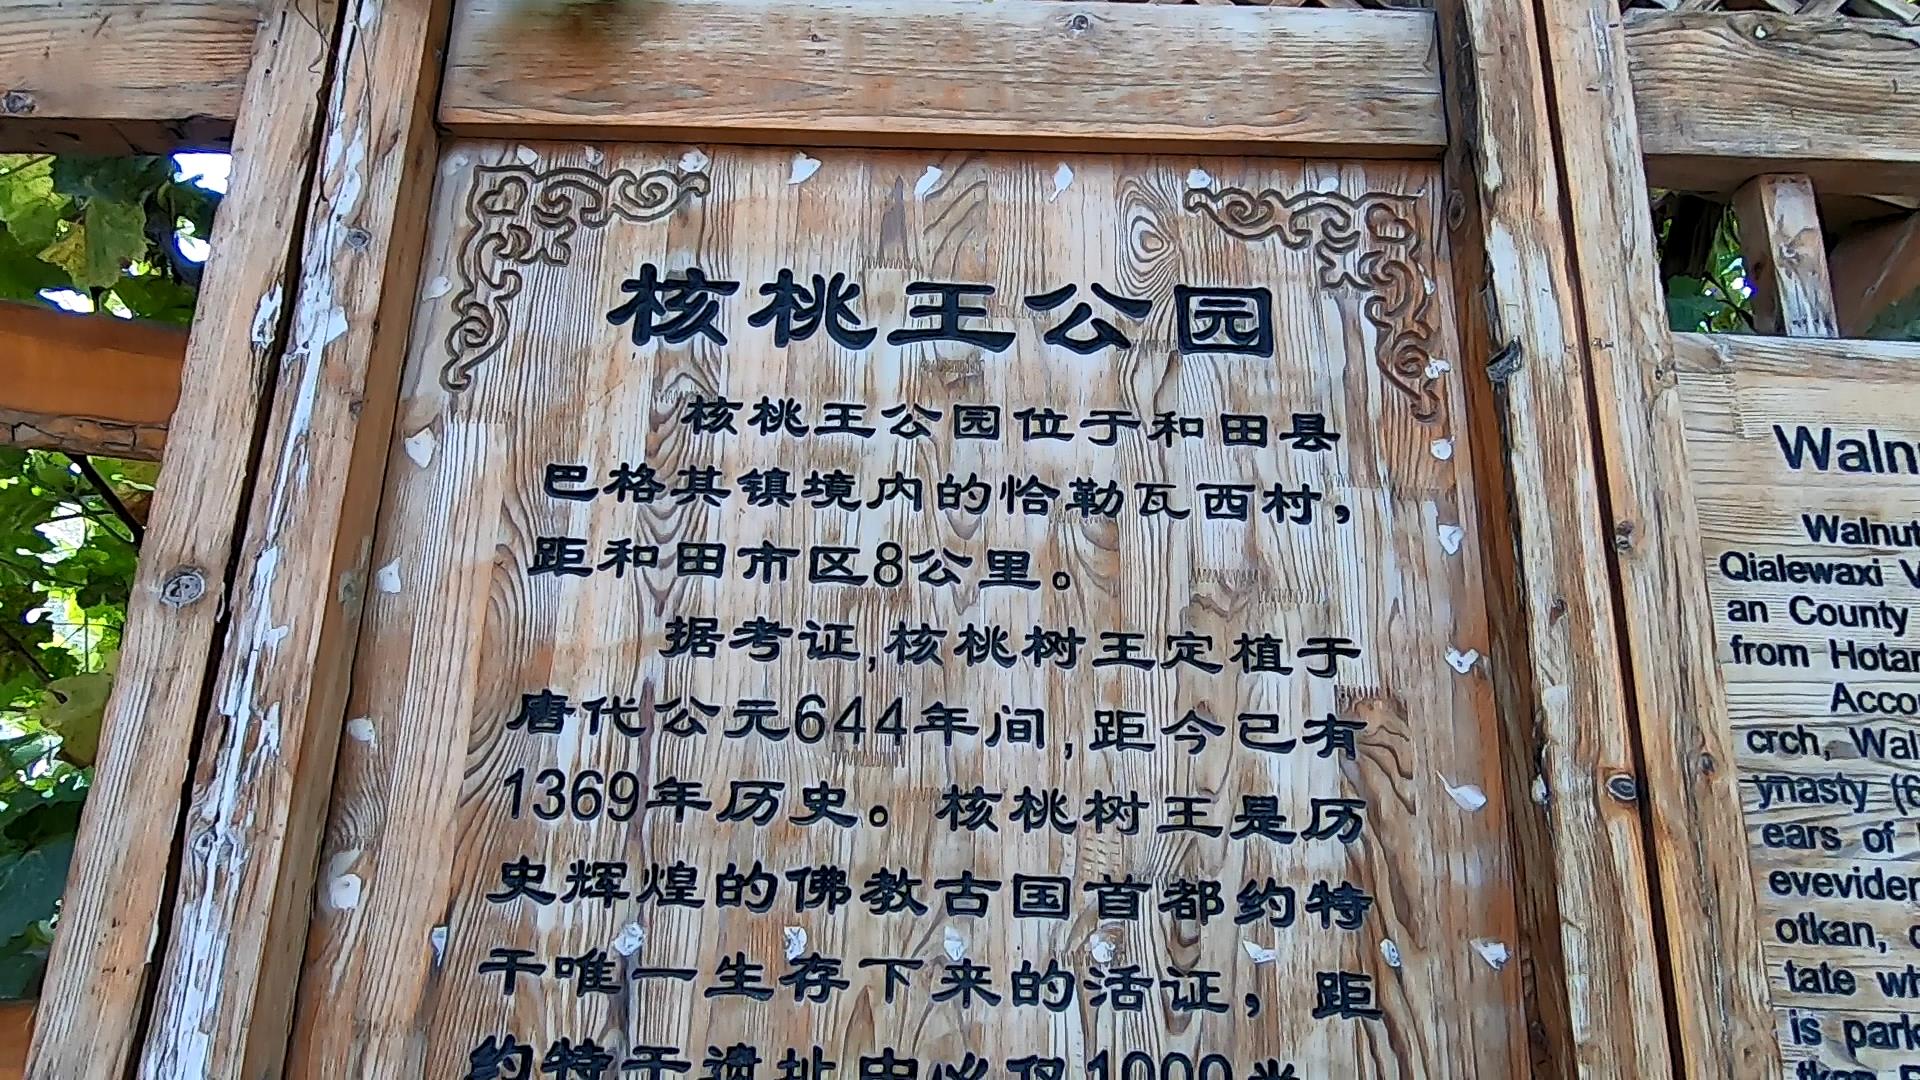 核桃王公园
核桃王公园位于和田县
巴格其镇境内的恰勒瓦西村，
距和田市区8公里。
据考证,核桃树王定植于
唐代公元644年间,距今已有
1369年历史。核桃树王是历
史辉煌的佛教古国首都约特
干唯一生存下来的活证，距
约特干遗址中心仅1000米
Waln
Walnut
Qialewaxi V
an County
from Hotan
Acco
crch, Wal
ynasty (6
ears of
eveviden
otkan,
tate wh
is park
tkan